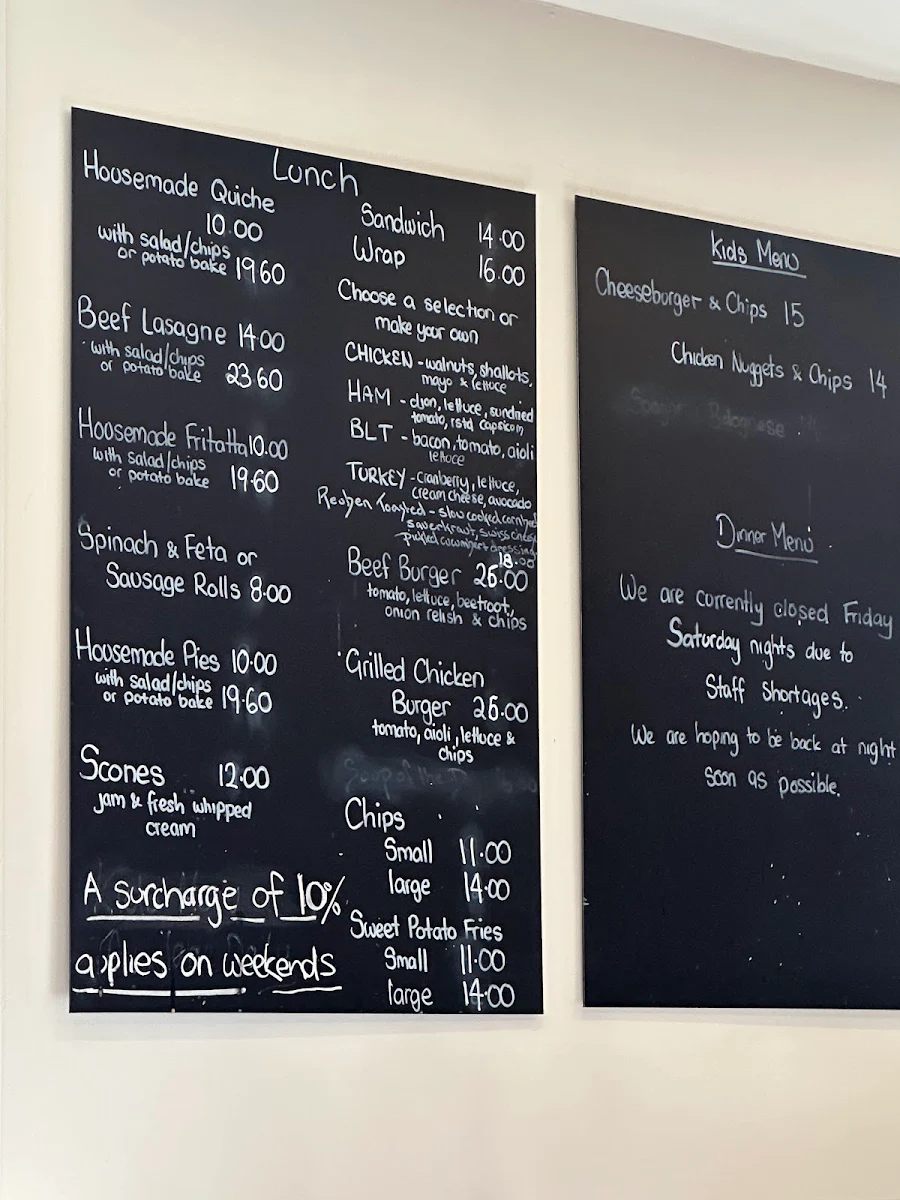 Lunch
Housemade Quiche
10.00
with salad/chips
or potato bake 19.60
Beef Lasagne 14.00
with salad/chips
or potato bake 23.60
Housemade Fritatta 10.00
with salad/chips
or potato bake 19.60
Spinach & Feta or
Sausage Rolls 8.00
Housemade Pies 10.00
with salad/chips
or potato bake 19.60
Scones 12.00
jam & fresh whipped
cream
A surcharge of 10%
applies on weekends
Sandwich 14.00
Wrap 16.00
Choose a selection or
make your own
CHICKEN - walnuts, shallots,
mayo & lettuce
HAM - dijon, lettuce, sundried
tomato, rstd capsicum
BLT - bacon, tomato, aioli
lettuce
TURKEY - cranberry, lettuce,
cream cheese, avocado
Reuben Toasted - slow cooked corned
sauerkraut, swiss cheese
pickled cucumber dressing
18.00
Beef Burger 26.00
tomato, lettuce, beetroot,
onion relish & chips
Grilled Chicken
Burger 26.00
tomato, aioli, lettuce &
chips
Chips
Small 11.00
large 14.00
Sweet Potato Fries
Small 11.00
large 14.00
Kids Menu
Cheeseburger & Chips 15
Chicken Nuggets & Chips 14
Dinner Menu
We are currently closed Friday
Saturday nights due to
Staff Shortages.
We are hoping to be back at night
soon as possible.